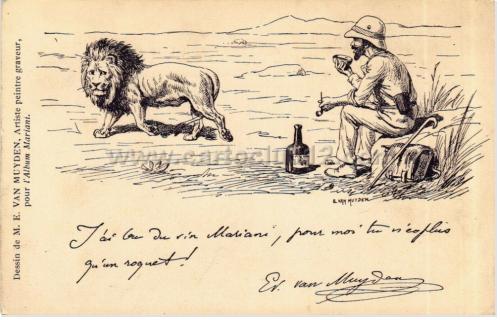 Dessin de M. E. VAN MUYDEN, Artiste peintre graveur,
pour l'Album Mariani.
E. VAN MUYDEN
J'ai bu du vin Mariani, pour moi tu n'es plus
qu'un roquet!
Ev. van Muyden